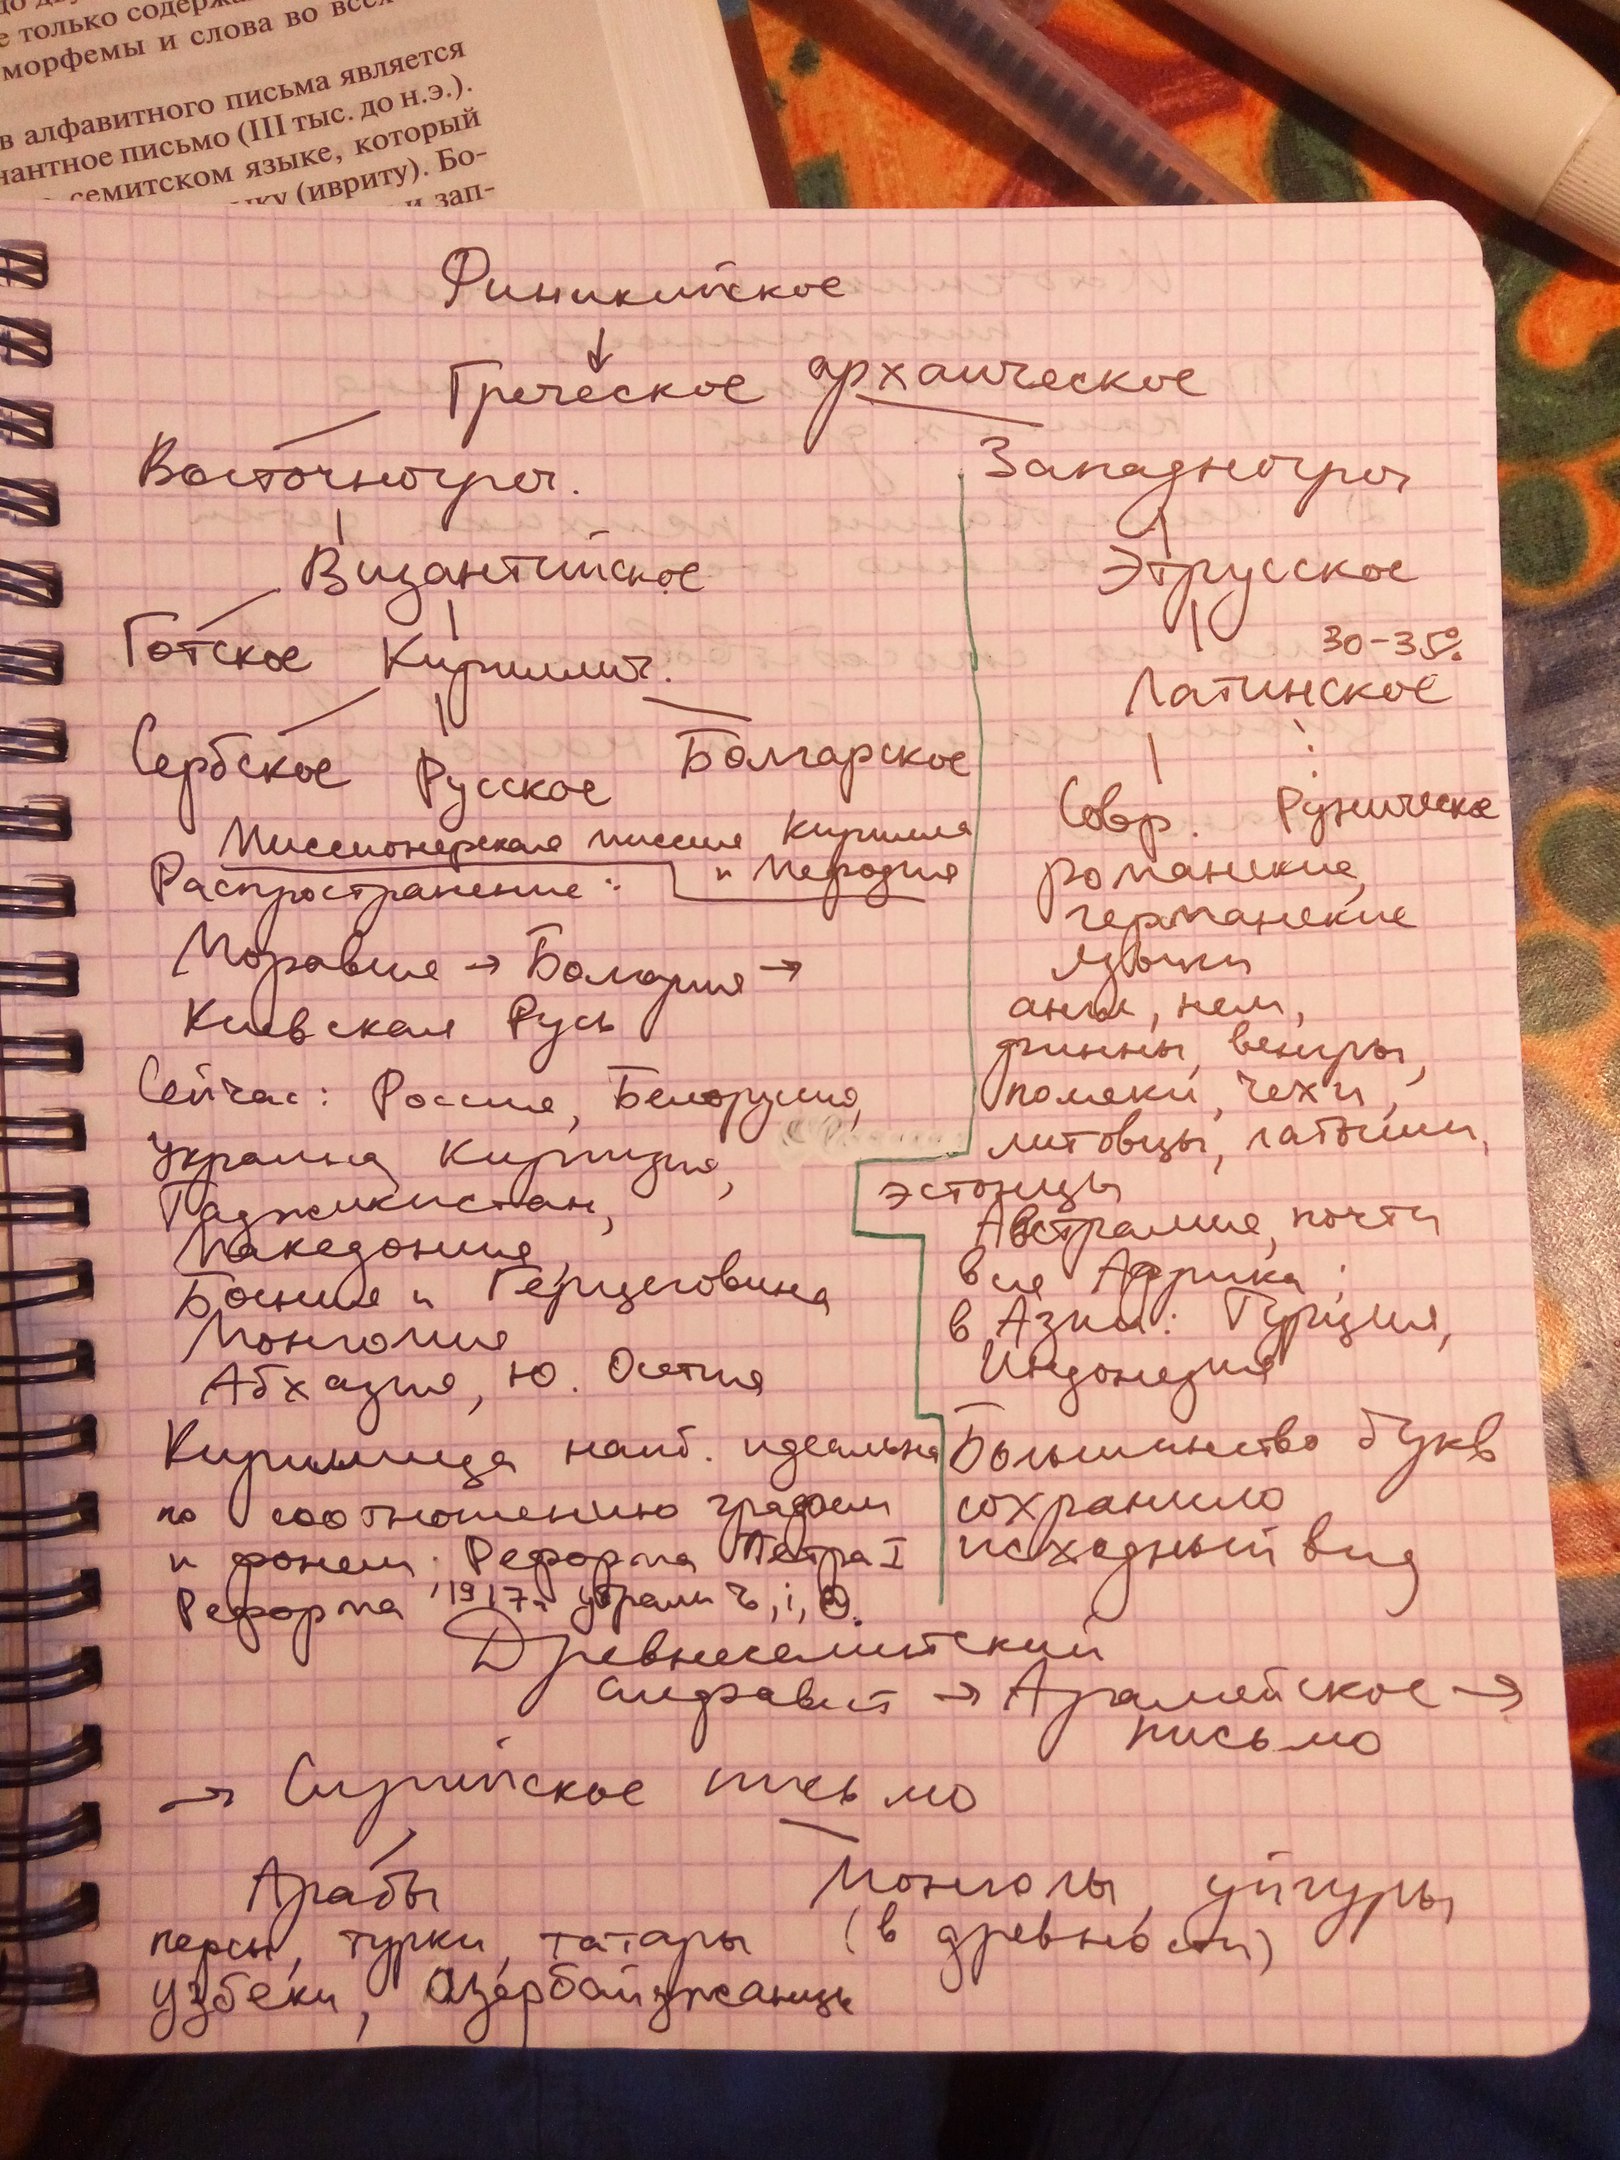 е только содержа
морфемы и слова во всех
в алфавитного письма является
нантное письмо (III тыс. до н.э.).
семитском языке, который
(ивриту). Бо-
и зап-
Финикийское
Греческое архаическое
Восточногреч.
Византийское
Готское Кириллич.
Сербское Русское Болгарское
Миссионерская миссия Кирилла
и Мефодия
Распространение:
Моравия → Болгария →
Киевская Русь
Сейчас: Россия, Белоруссия,
Украина, Киргизия,
Таджикистан,
Македония,
Босния и Герцеговина
Монголия
Абхазия, Ю. Осетия
Кириллица наиб. идеальна
по соотношению графем
и фонем. Реформа Петра I
Реформа 1917г убрали ъ, i, Ѳ.
Западногреч
Этрусское
30-35%
Латинское
Совр. Руническое
романские,
германские
языки
англ, нем,
финны, венгры,
поляки, чехи,
литовцы, латыши,
эстонцы
Австралия, почти
вся Африка;
в Азии: Турция,
Индонезия
Большинство букв
сохранило
исходный вид
Древнесемитский
алфавит → Арамейское →
письмо
→ Сирийское письмо
Арабы
персы, турки, татары
узбеки, азербайджанцы
Монголы, уйгуры
(в древности)